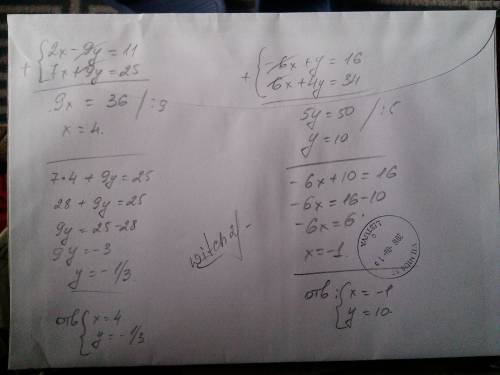 + { 2x - 9y = 11
7x + 9y = 25
9x = 36 / :9
x = 4.
7•4 + 9y = 25
28 + 9y = 25
9y = 25-28
9y = -3
y = -1/3.
отв { x = 4
y = -1/3
witch21
+ { -6x + y = 16
6x + 4y = 34
5y = 50 / :5
y = 10
-6x + 10 = 16
-6x = 16-10
-6x = 6
x = -1.
отв: { x = -1
y = 10.